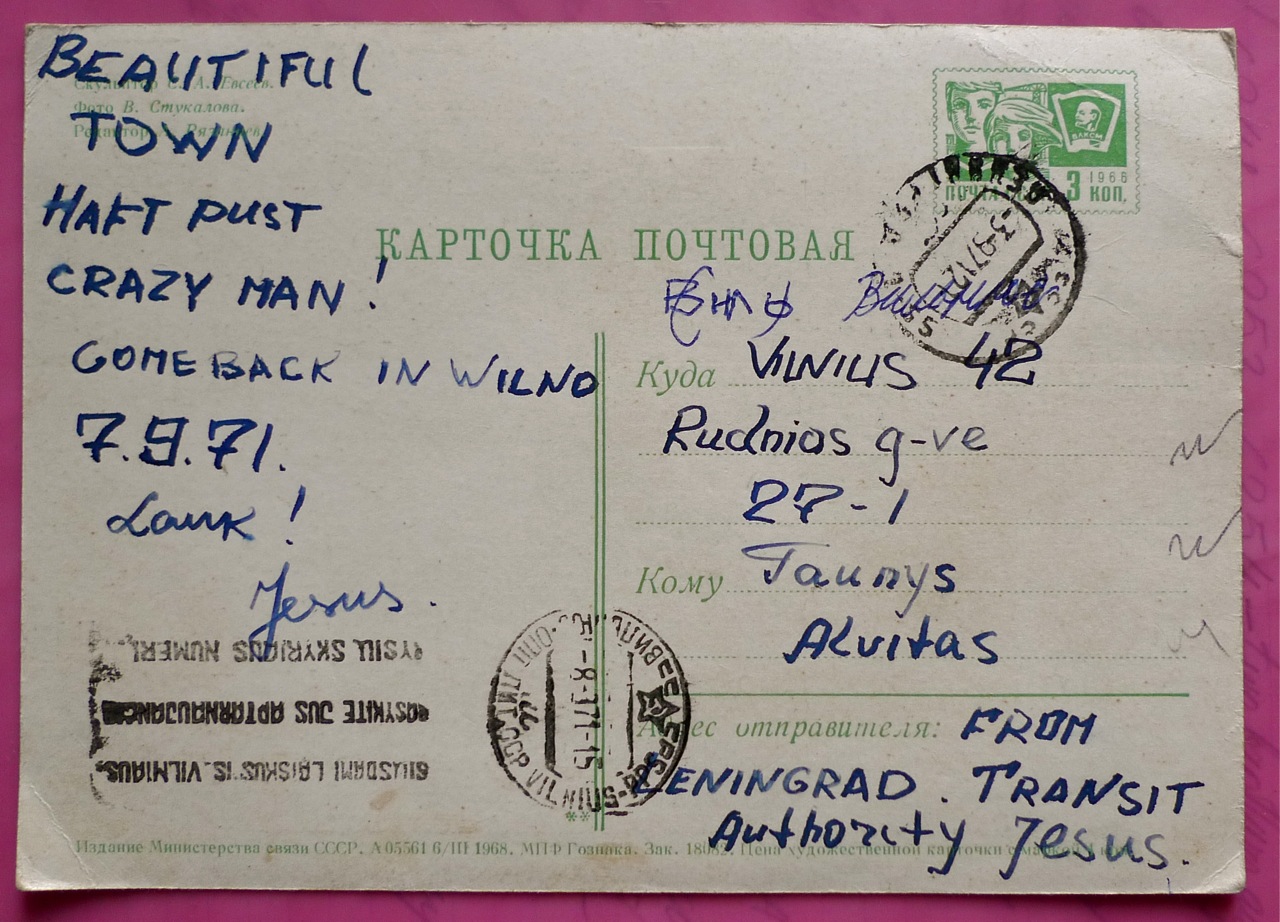 BEAUTIFUL
TOWN
HAFT PUST
CRAZY MAN!
COME BACK IN WILNO
7.9.71.
Lauk!
Jesus.
Скульптор С. А. Евсеев.
Фото В. Стукалова.
Редактор
ВЛКСМ
1966
ПОЧТА
3 КОП.
КАРТОЧКА ПОЧТОВАЯ
Куда VILNIUS 42
Rudnios g-ve
27-1
Кому Taunys
Alvitas
Адрес отправителя: FROM
LENINGRAD. TRANSIT
Authority Jesus.
RYSIŲ SKYRIAUS NUMERĮ.
RAŠYKITE JUS APTARNAUJANČIO
SIŲSDAMI LAIŠKUS IŠ VILNIAUS,
VILNIUS
Издание Министерства связи СССР. А 05561 6/III 1968. МПФ Гознака. Зак. 18082. Цена художественной карточки с маркой 4 коп.